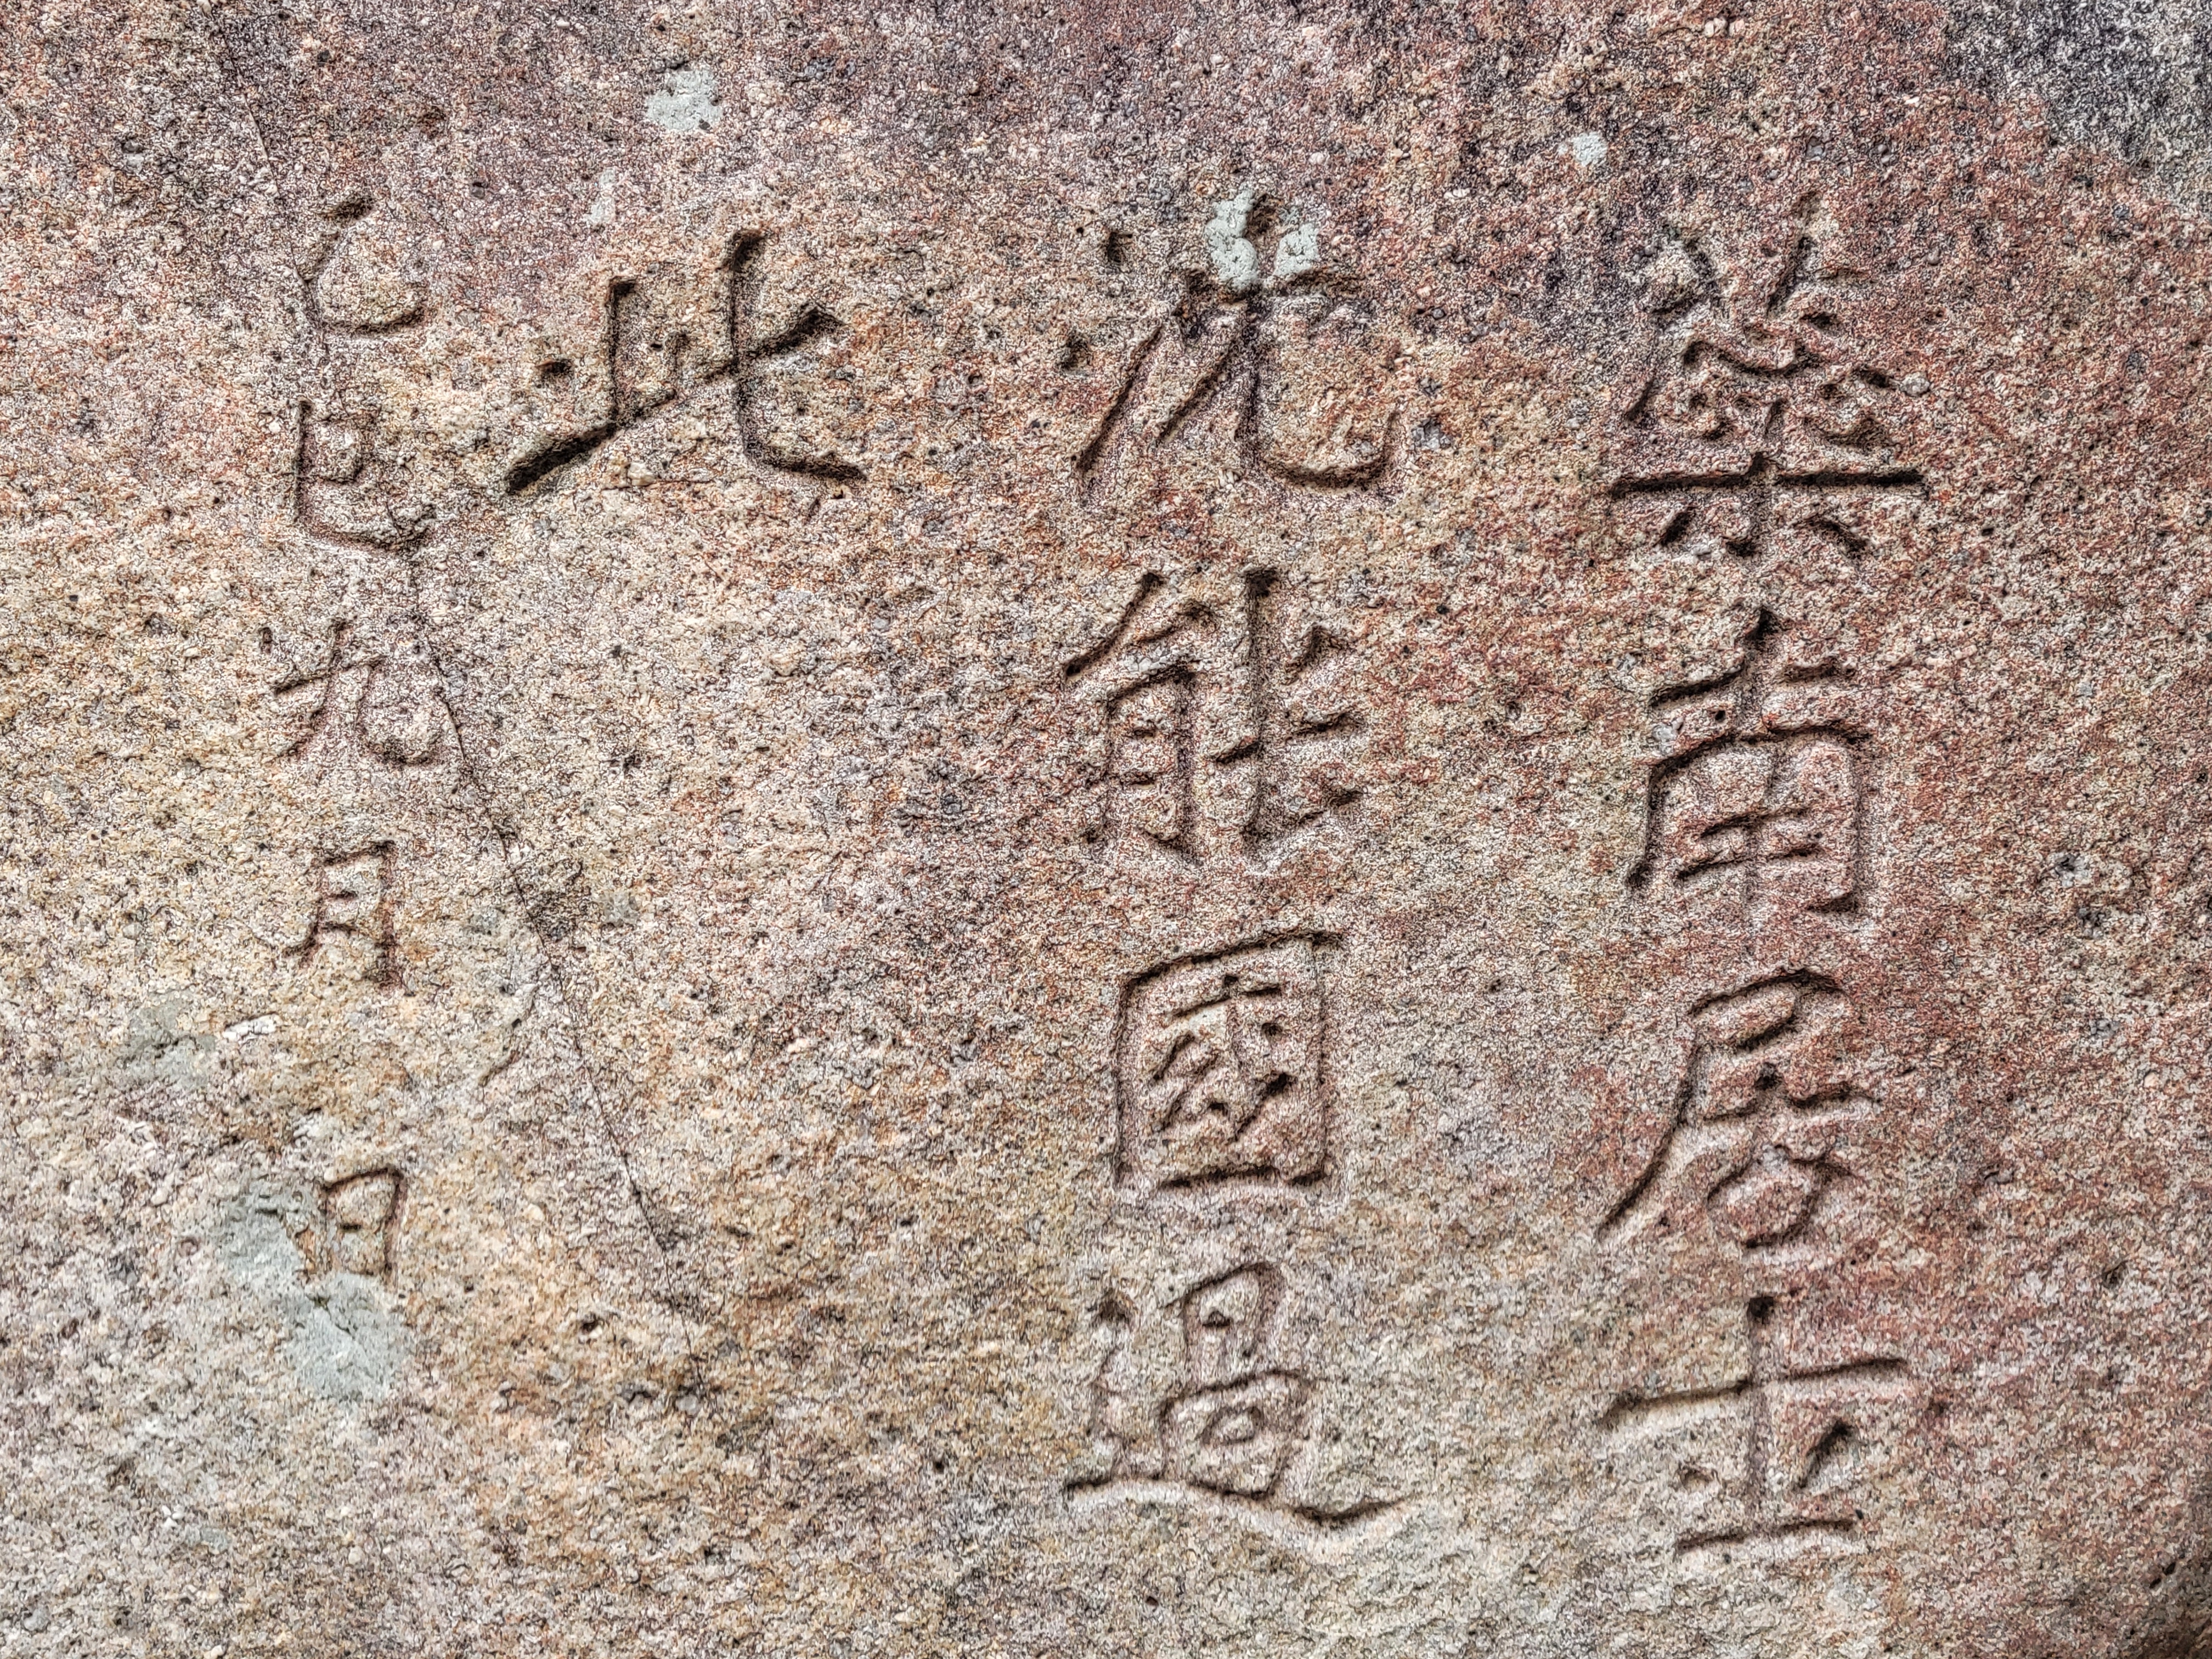 蘂南居士
沈能國過
此
乙巳九月 日